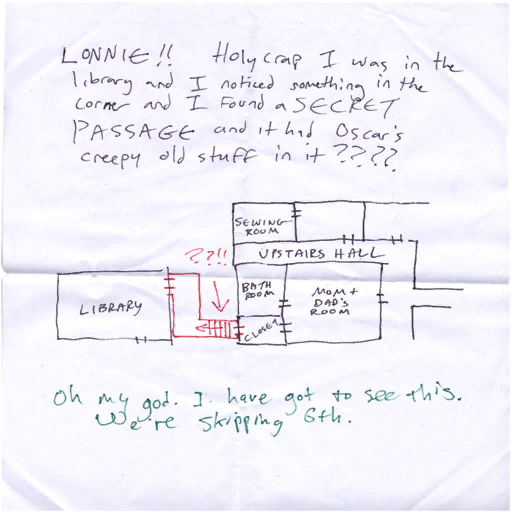 LONNIE!! Holy crap I was in the
library and I noticed something in the
corner and I found a SECRET
PASSAGE and it had Oscar's
creepy old stuff in it ????
SEWING
ROOM
UPSTAIRS HALL
??!!
BATH
ROOM
MOM +
DAD'S
ROOM
LIBRARY
CLOSET
Oh my god. I have got to see this.
We're skipping 6th.